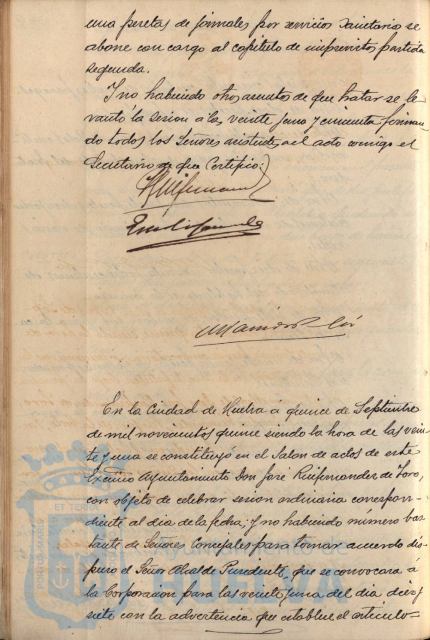 una pesetas de jornales por servicio sanitario se
abone con cargo al capitulo de imprevistos partida
segunda.
Y no habiendo otros asuntos de que tratar se le
vantó la sesion á las veinte y una y cincuenta firman
do todos los Señores asistentes al acto conmigo el
Secretario de que Certifico:
En la Ciudad de Huelva á quince de Septiembre
de mil novecientos quince siendo la hora de las vein
te y una se constituyó en el Salon de actos de este
Excmo Ayuntamiento Don José Ruifernandez de Toro,
con objeto de celebrar sesion ordinaria correspon-
diente al dia de la fecha; y no habiendo número bas
tante de Señores Concejales para tomar acuerdo dis
puso el Señor Alcalde Presidente, que se convocara á
la Corporacion para las veinte y una del dia diez y
siete con la advertencia que establece el articulo